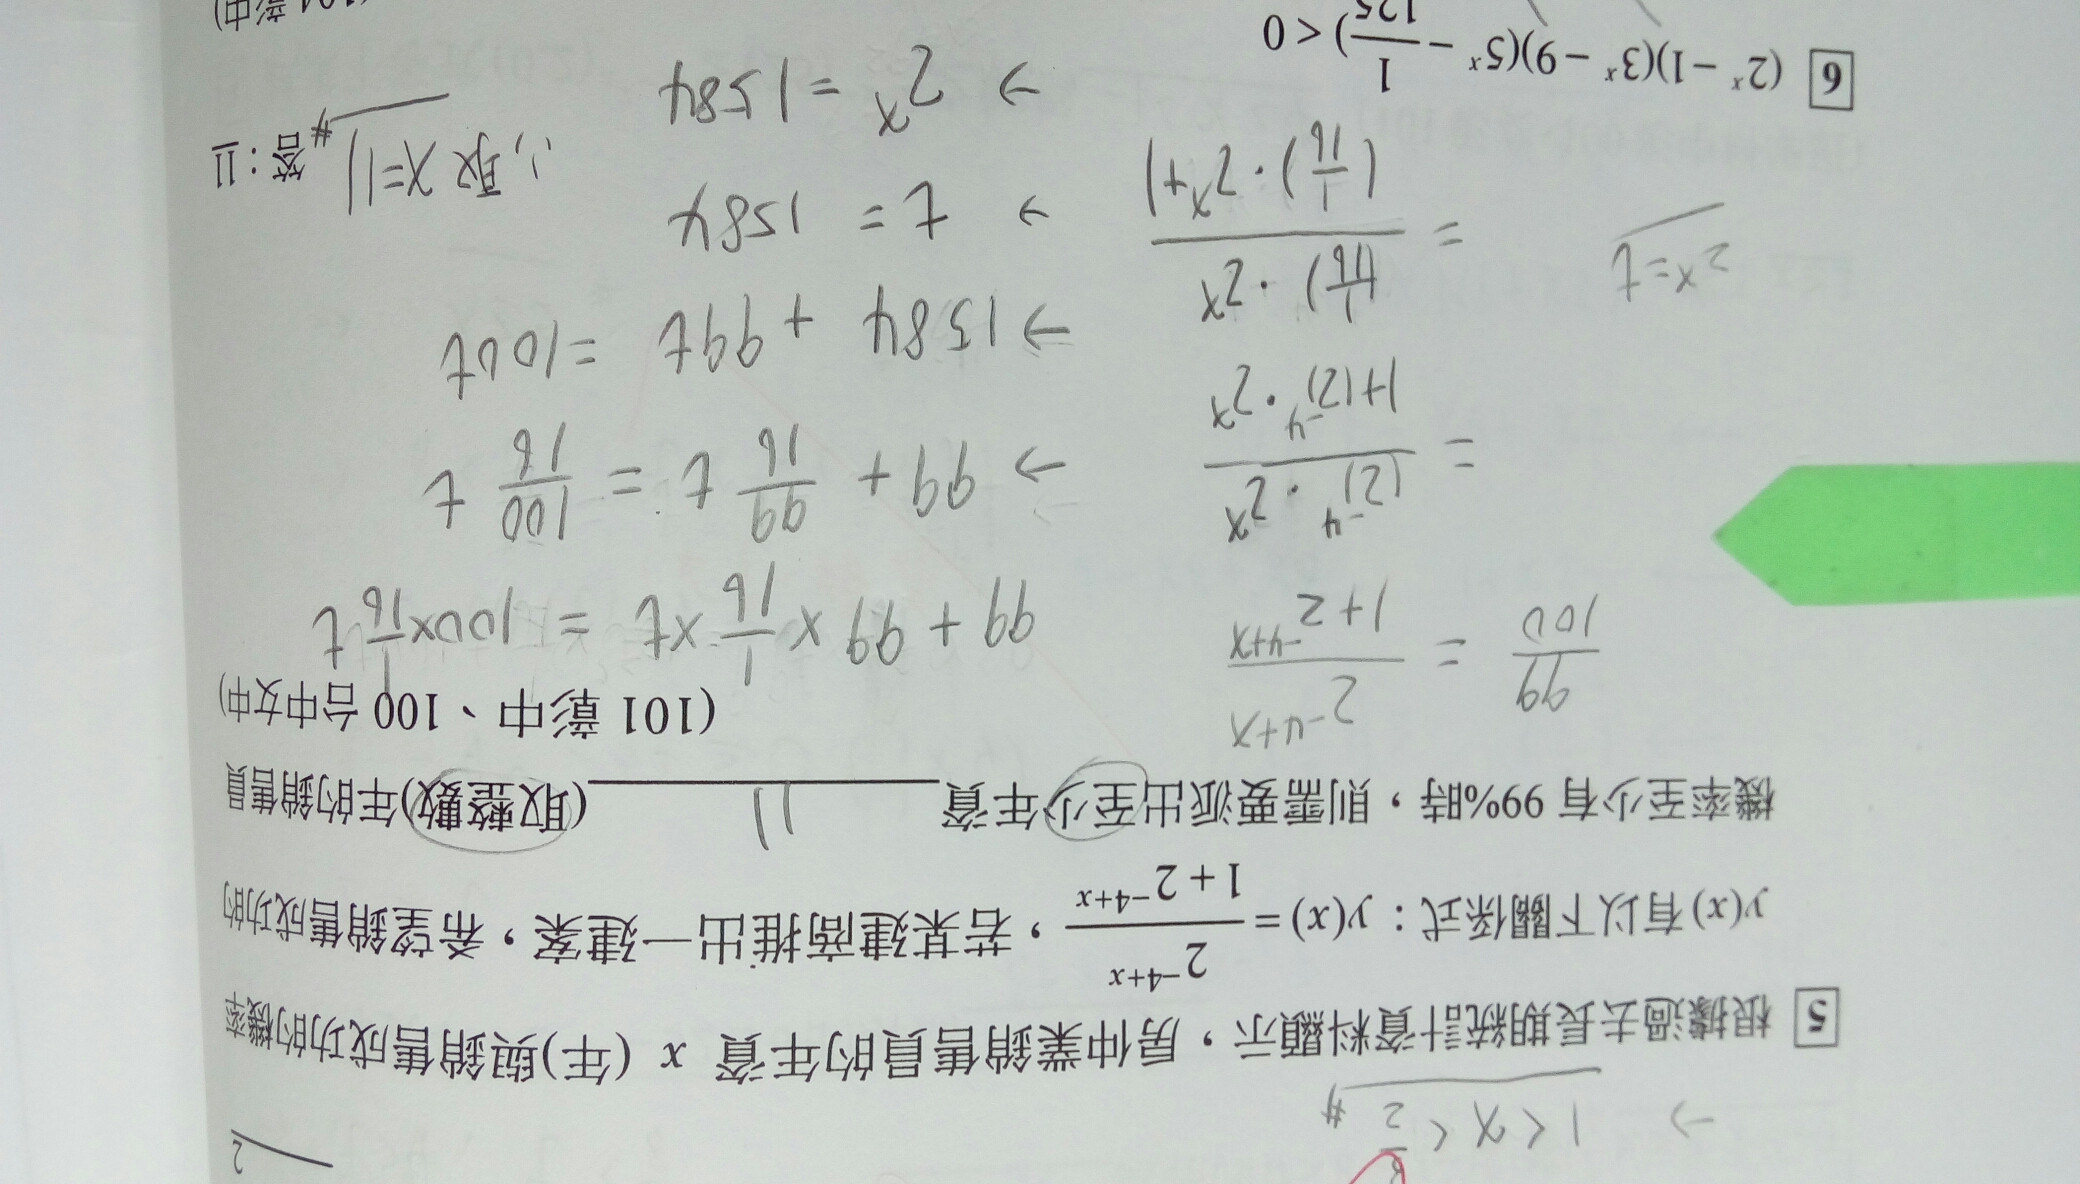 → 1 < x < 5/2 #
5 根據過去長期統計資料顯示，房仲業銷售員的年資 x (年)與銷售成功的機率
y(x) 有以下關係式：y(x) = 2^(-4+x) / (1 + 2^(-4+x))，若某建商推出一建案，希望銷售成功的
機率至少有 99%時，則需要派出至少年資 11 (取整數)年的銷售員
(101 彰中、100 台中女中)
99/100 = 2^(-4+x) / (1+2^(-4+x))
= (2)^-4 · 2^x / (1+(2)^-4 · 2^x)
= (1/16) · 2^x / ((1/16) · 2^x + 1)
2^x = t
99 + 99 × 1/16 × t = 100 × 1/16 t
→ 99 + 99/16 t = 100/16 t
→ 1584 + 99t = 100t
→ t = 1584
→ 2^x = 1584
∴取 x = 11 #
答：11
6 (2^x − 1)(3^x − 9)(5^x − 1/125) < 0